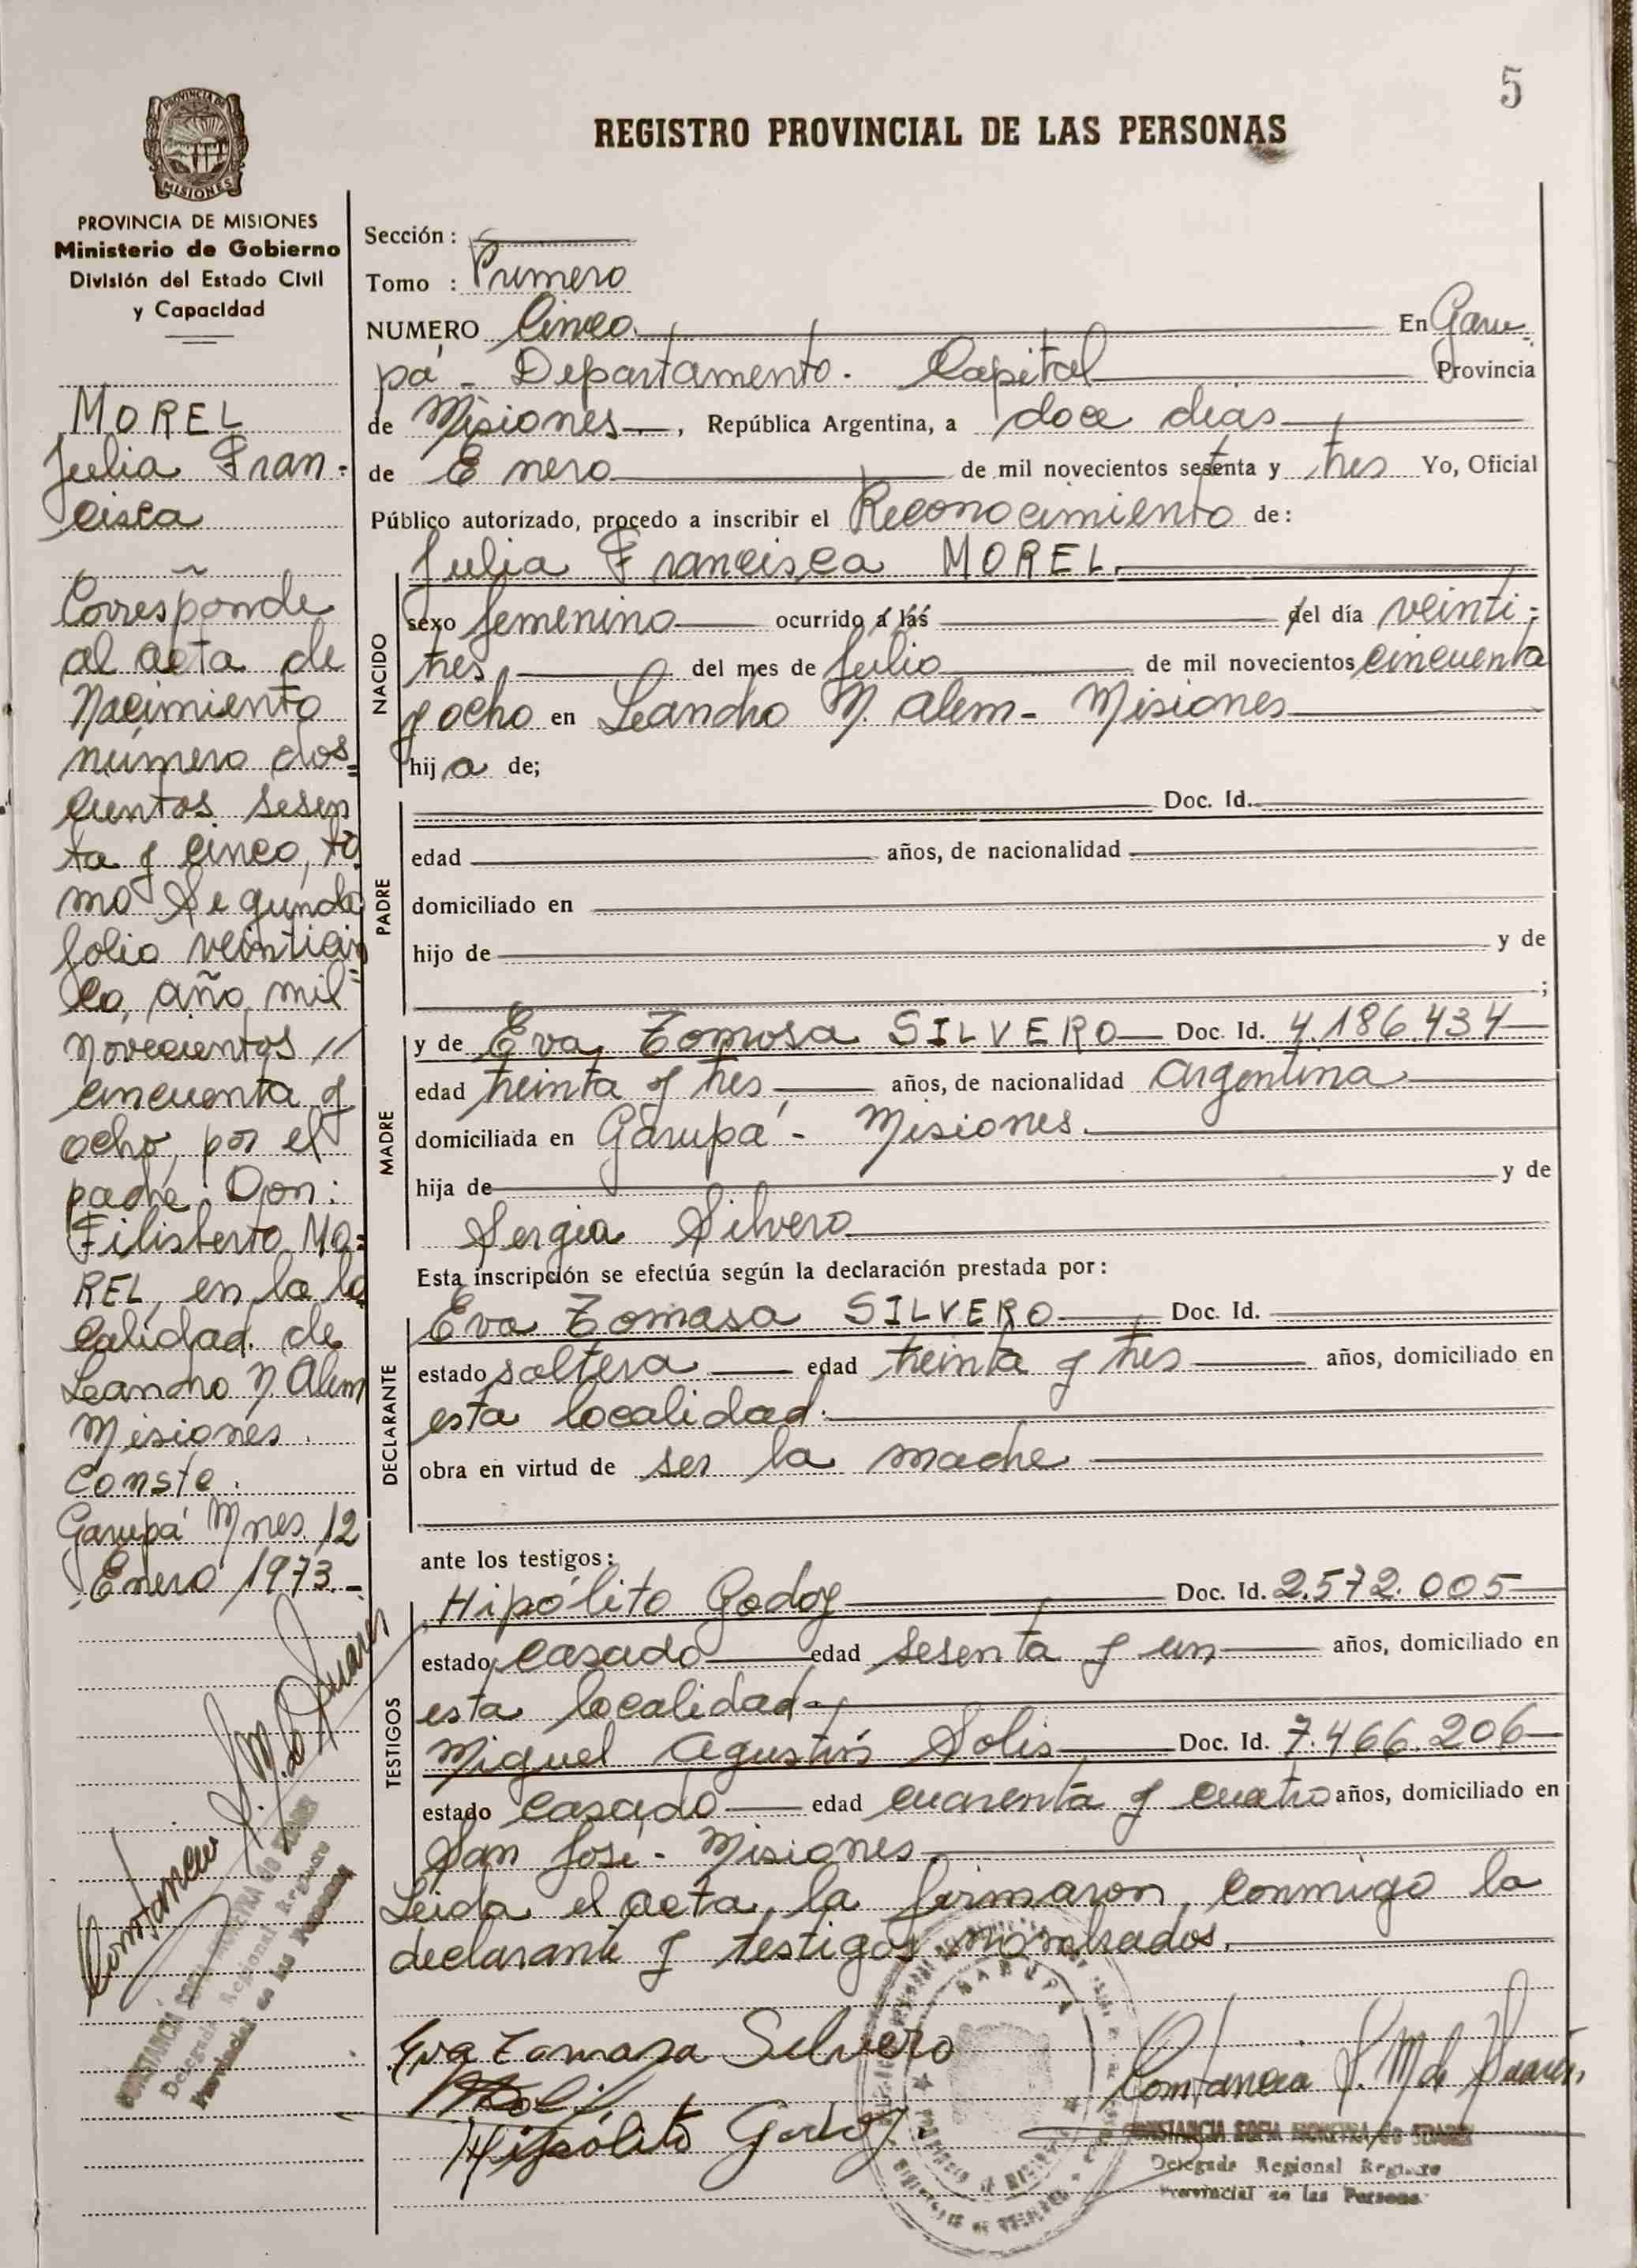 5
REGISTRO PROVINCIAL DE LAS PERSONAS
PROVINCIA DE
MISIONES
PROVINCIA DE MISIONES
Ministerio de Gobierno
División del Estado Civil
y Capacidad
MOREL
Julia Fran-
cisca
Corresponde
al acta de
Nacimiento
número dos=
cientos sesen
ta y cinco, to
mo Segundo
folio veinticin
co, año mil
novecientos //
cincuenta y
ocho, por el
padre Don:
Filisberto MO=
REL, en la lo
calidad de
Leandro N. Alem
Misiones.
Conste.
Garupá Mnes. 12
Enero 1973.-
Constancia S. M. de Suarez
CONSTANCIA SOFIA MOREYRA de SUAREZ
Delegada Regional Registro
Provincial de las Personas
Sección :
Tomo : Primero
NUMERO Cinco. En Garu-
pá - Departamento. Capital Provincia
de Misiones , República Argentina, a doce días
de Enero de mil novecientos setenta y tres Yo, Oficial
Público autorizado, procedo a inscribir el Reconocimiento de :
Julia Francisca MOREL.
NACIDO
sexo femenino ocurrido á lás del día veinti-
tres, del mes de Julio de mil novecientos cincuenta
y ocho en Leandro N. Alem - Misiones
hij a de;
PADRE
Doc. Id.
edad años, de nacionalidad
domiciliado en
hijo de y de
;
MADRE
y de Eva Tomosa SILVERO Doc. Id. 4.186.434
edad treinta y tres años, de nacionalidad Argentina
domiciliada en Garupá - Misiones.
hija de y de
Sergia Silvero
Esta inscripción se efectúa según la declaración prestada por :
DECLARANTE
Eva Tomasa SILVERO Doc. Id.
estado soltera edad treinta y tres años, domiciliado en
esta localidad.
obra en virtud de ser la madre
ante los testigos :
TESTIGOS
Hipólito Godoy Doc. Id. 2.572.005
estado casado edad sesenta y un años, domiciliado en
esta localidad.
Miguel Agustín Solis Doc. Id. 7.466.206
estado casado edad cuarenta y cuatro años, domiciliado en
San José - Misiones.
Leida el acta, la firmaron, conmigo la
declarante y testigos nombrados.
Eva Tomasa Silvero
Hipólito Godoy
GARUPA
Constancia S. M. de Suarez
CONSTANCIA SOFIA MOREYRA de SUAREZ
Delegada Regional Registro
Provincial de las Personas